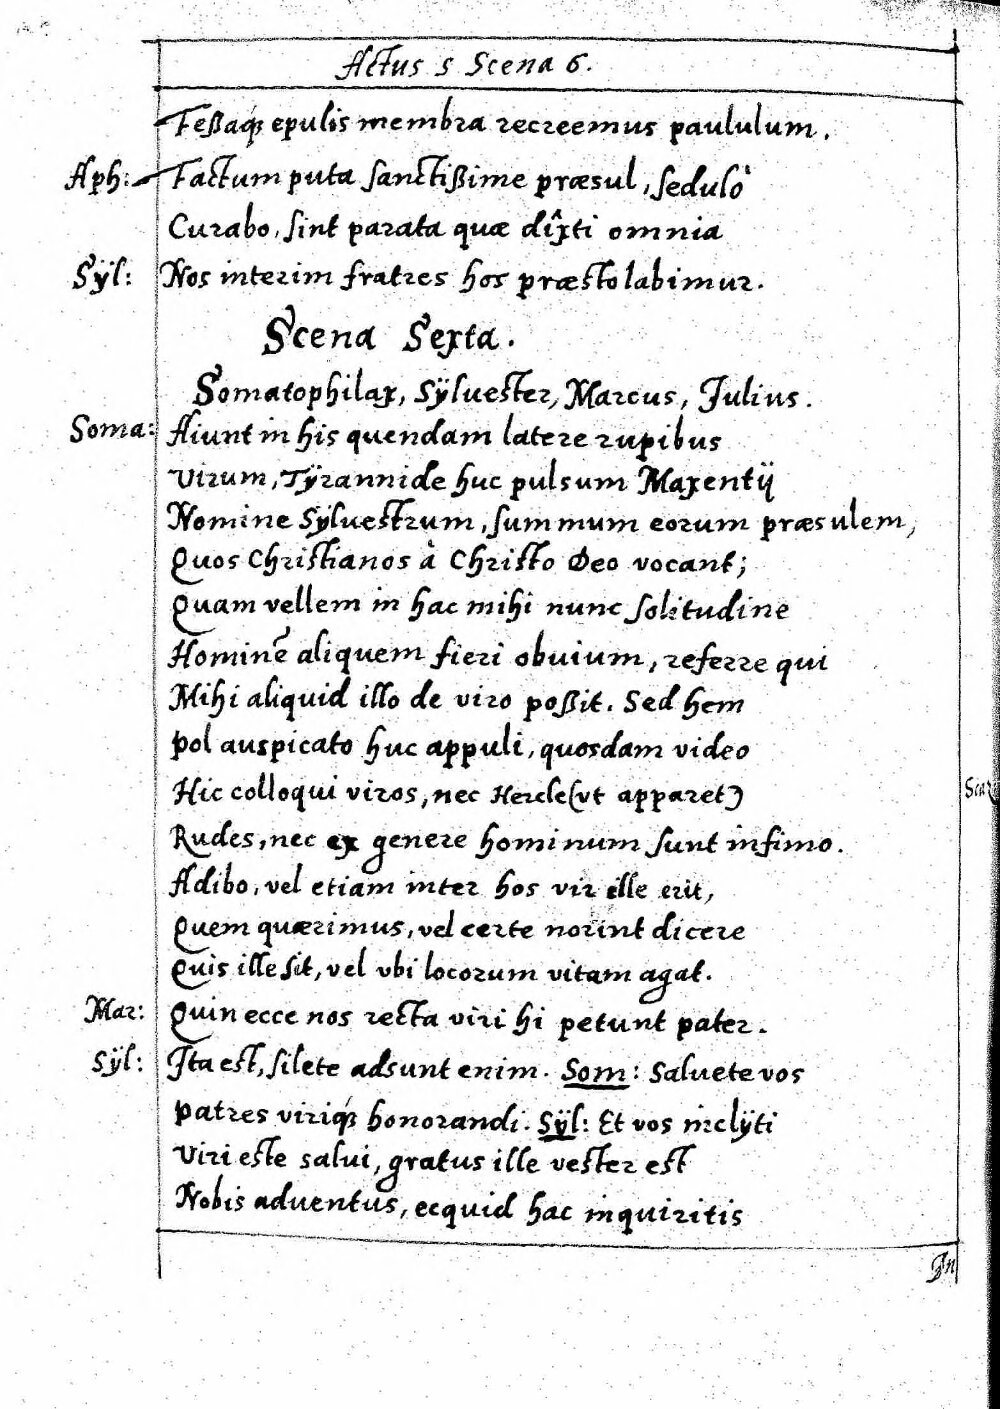 Actus 5 Scena 6.
Feßaq; epulis membra recreemus paululum.
Aph: Factum puta sanctißime præsul, sedulò
Curabo, sint parata quæ dîxti omnia
Sÿl: Nos interim fratres hos præstolabimur.
Scena Sexta.
Somatophilax, Sÿluester, Marcus, Julius.
Soma: Aiunt in his quendam latere rupibus
Virum, Tÿrannide huc pulsum Maxentÿ
Nomine Sÿluestrum, summum eorum præsulem,
Quos Christianos à Christo Deo vocant;
Quam vellem in hac mihi nunc solitudine
Hominẽ aliquem fieri obuium, referre qui
Mihi aliquid illo de viro poßit. Sed hem
pol auspicato huc appuli, quosdam video
Hic colloqui viros, nec Hercle (vt apparet)
Rudes, nec ex genere hominum sunt infimo.
Adibo, vel etiam inter hos vir ille erit,
Quem quærimus, vel certe norint dicere
Quis ille sit, vel vbi locorum vitam agat.
Mar: Quin ecce nos recta viri hi petunt pater.
Sÿl: Ita est, silete adsunt enim. Som: Saluete vos
patres viriq; honorandi. Sÿl: Et vos inclÿti
Viri este salui, gratus ille vester est
Nobis aduentus, ecquid hac inquiritis
In